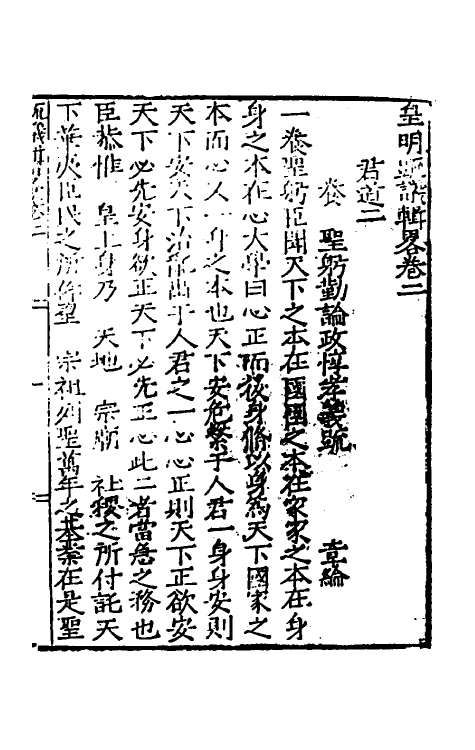 皇明疏議輯畧卷二
君道二
養 聖躬勤論政惇孝義疏 章綸
一養聖躬臣聞天下之本在國國之本在家家之本在身
身之本在心大學曰心正而後身脩以身為天下國家之
本而心又一身之本也天下安危繫于人君一身身安則
天下安天下治亂出于人君之一心心正則天下正欲安
天下必先安身欲正天下必先正心此二者當急之務也
臣恭惟 皇上身乃 天地 宗廟 社稷之所付託天
下華夷臣民之所仰望 宗祖列聖萬年之基業在是聖